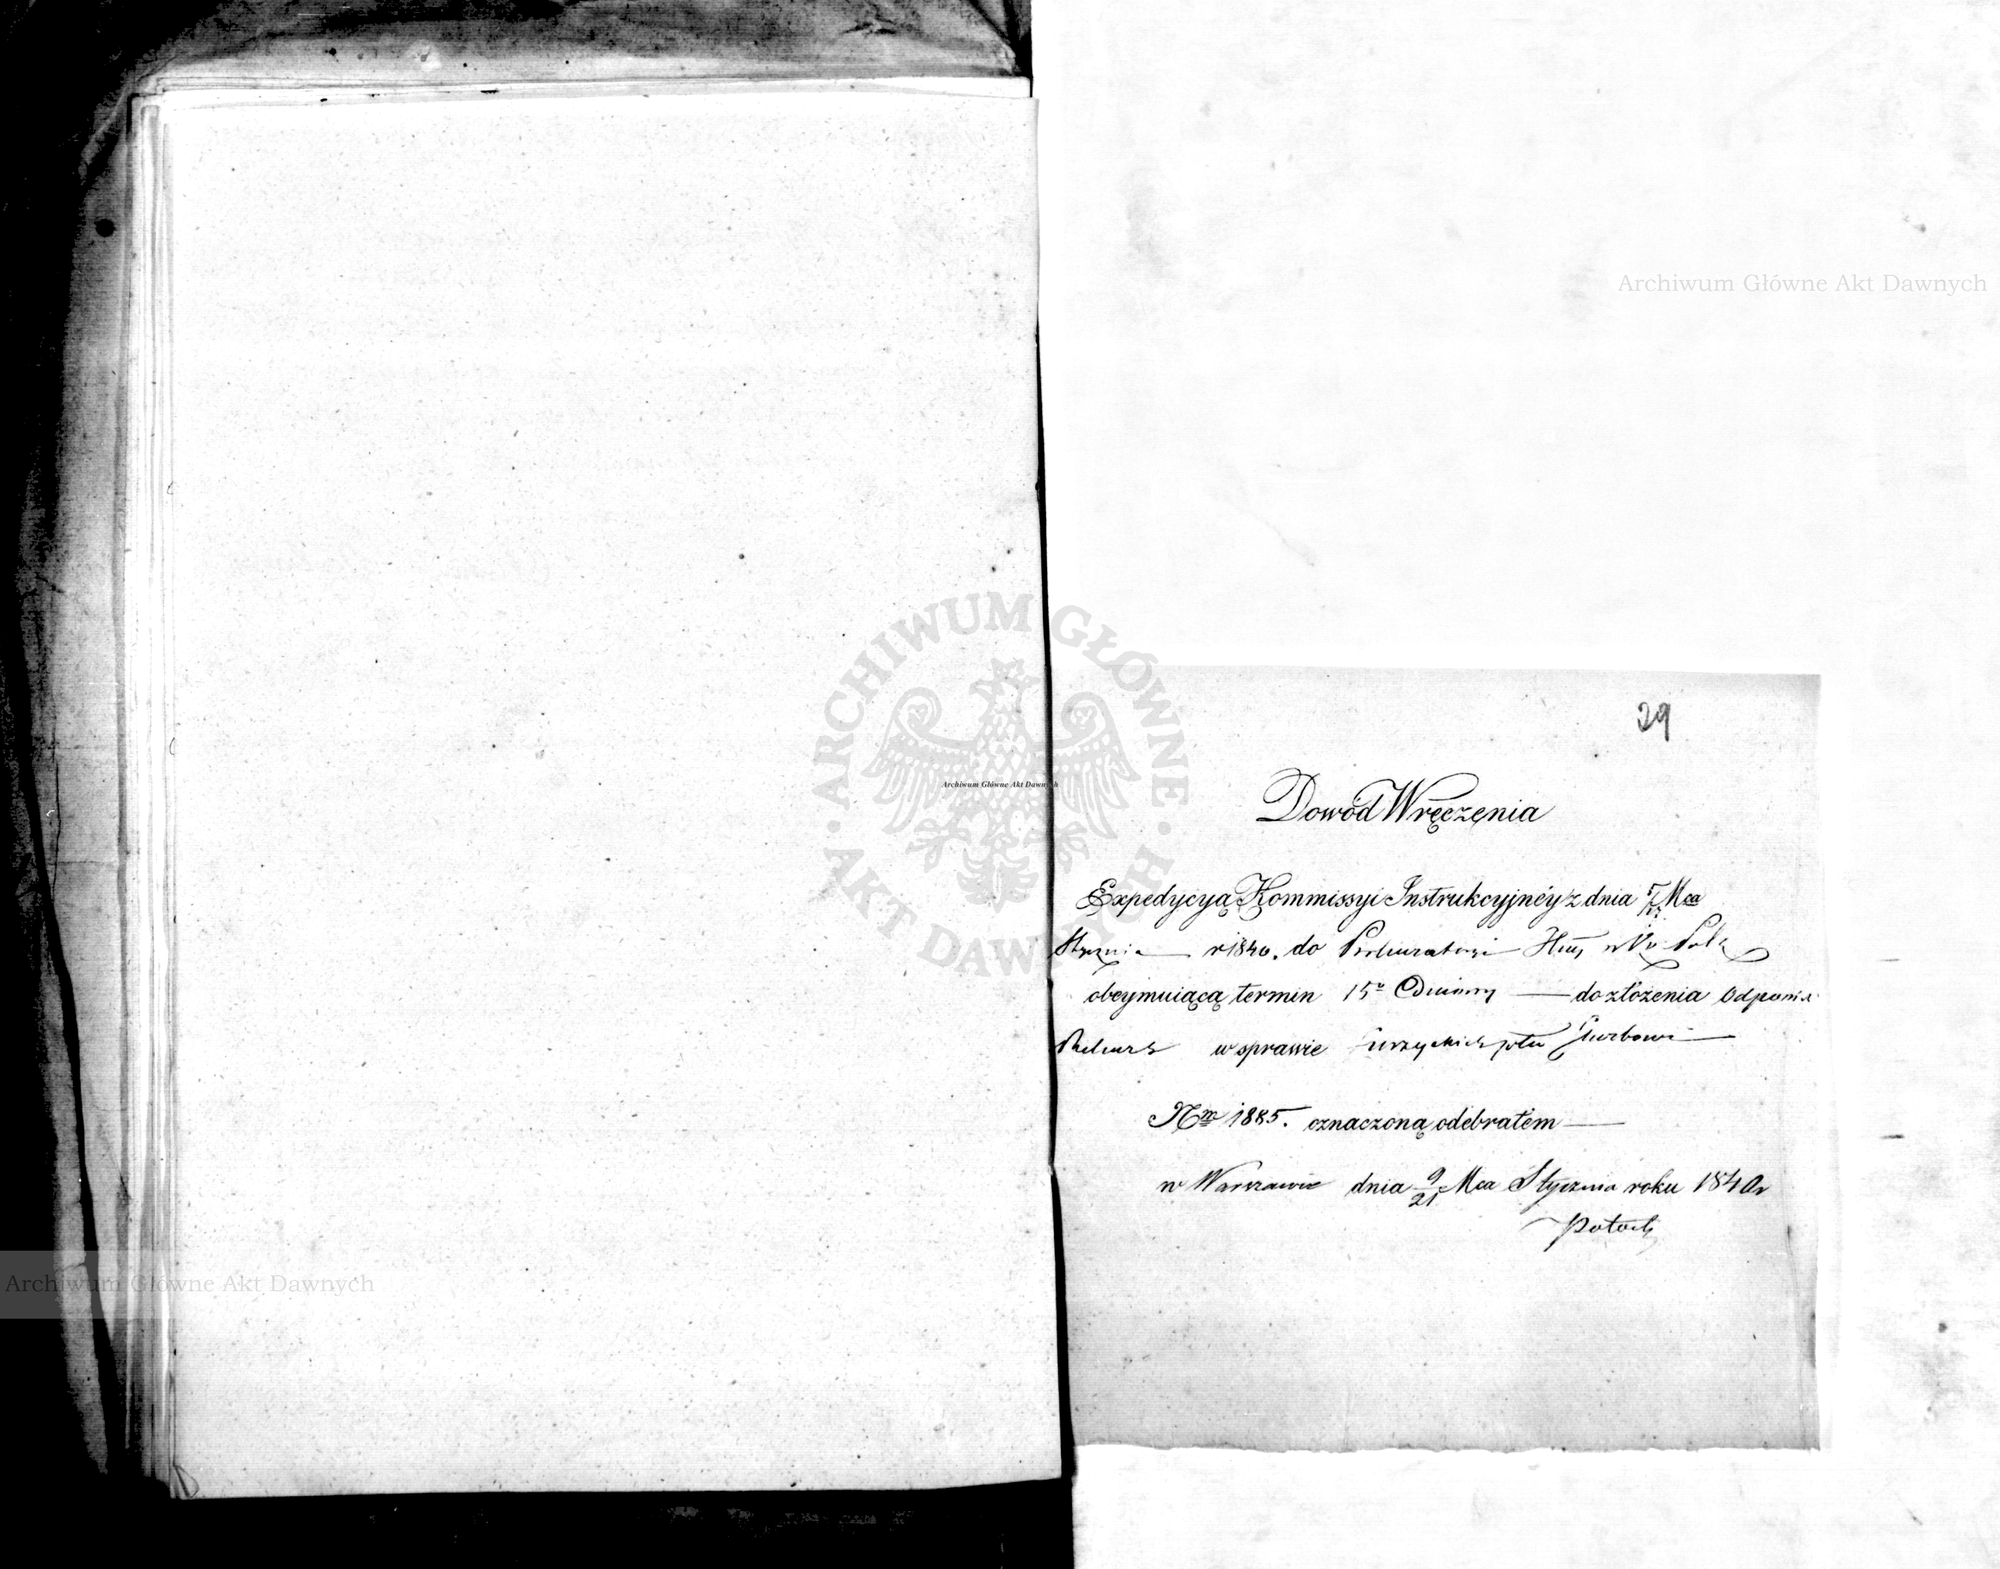 29
Dowód Wręczenia
Expedycyą Kommissyi Instrukcyjnéy z dnia 5/17 Mca
Stycznia r 1840. do Prokuratoryi w
obeymuiącą termin 15o Dniowy do złożenia Odpowie
Rekurs w sprawie Skarbowi
Nrm 1885. oznaczoną odebrałem
w Warszawie dnia 9/21 Mca Stycznia roku 1840 r
Archiwum Główne Akt Dawnych
ARCHIWUM GŁÓWNE AKT DAWNYCH
Archiwum Główne Akt Dawnych
Archiwum Główne Akt Dawnych